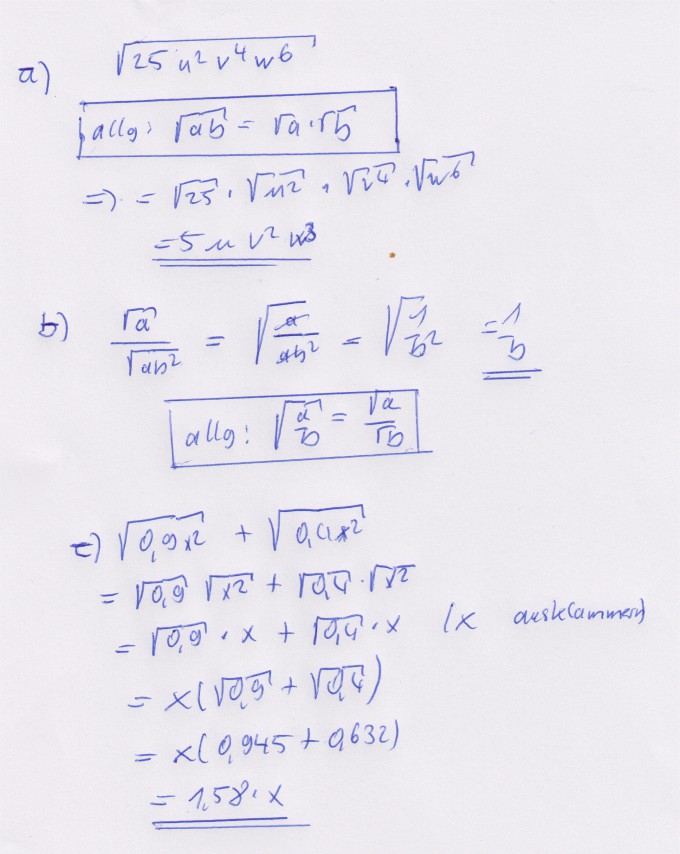 a) √25 u² v⁴ w⁶
allg: √ab = √a · √b
=> = √25 · √u² · √v⁴ · √w⁶
= 5 u v² w³
b) √a / √ab² = √(a / ab²) = √(1 / b²) = 1 / b
allg: √(a / b) = √a / √b
c) √0,9x² + √0,4x²
= √0,9 √x² + √0,4 · √x²
= √0,9 · x + √0,4 · x (x ausklammern)
= x(√0,9 + √0,4)
= x(0,945 + 0,632)
= 1,58 · x